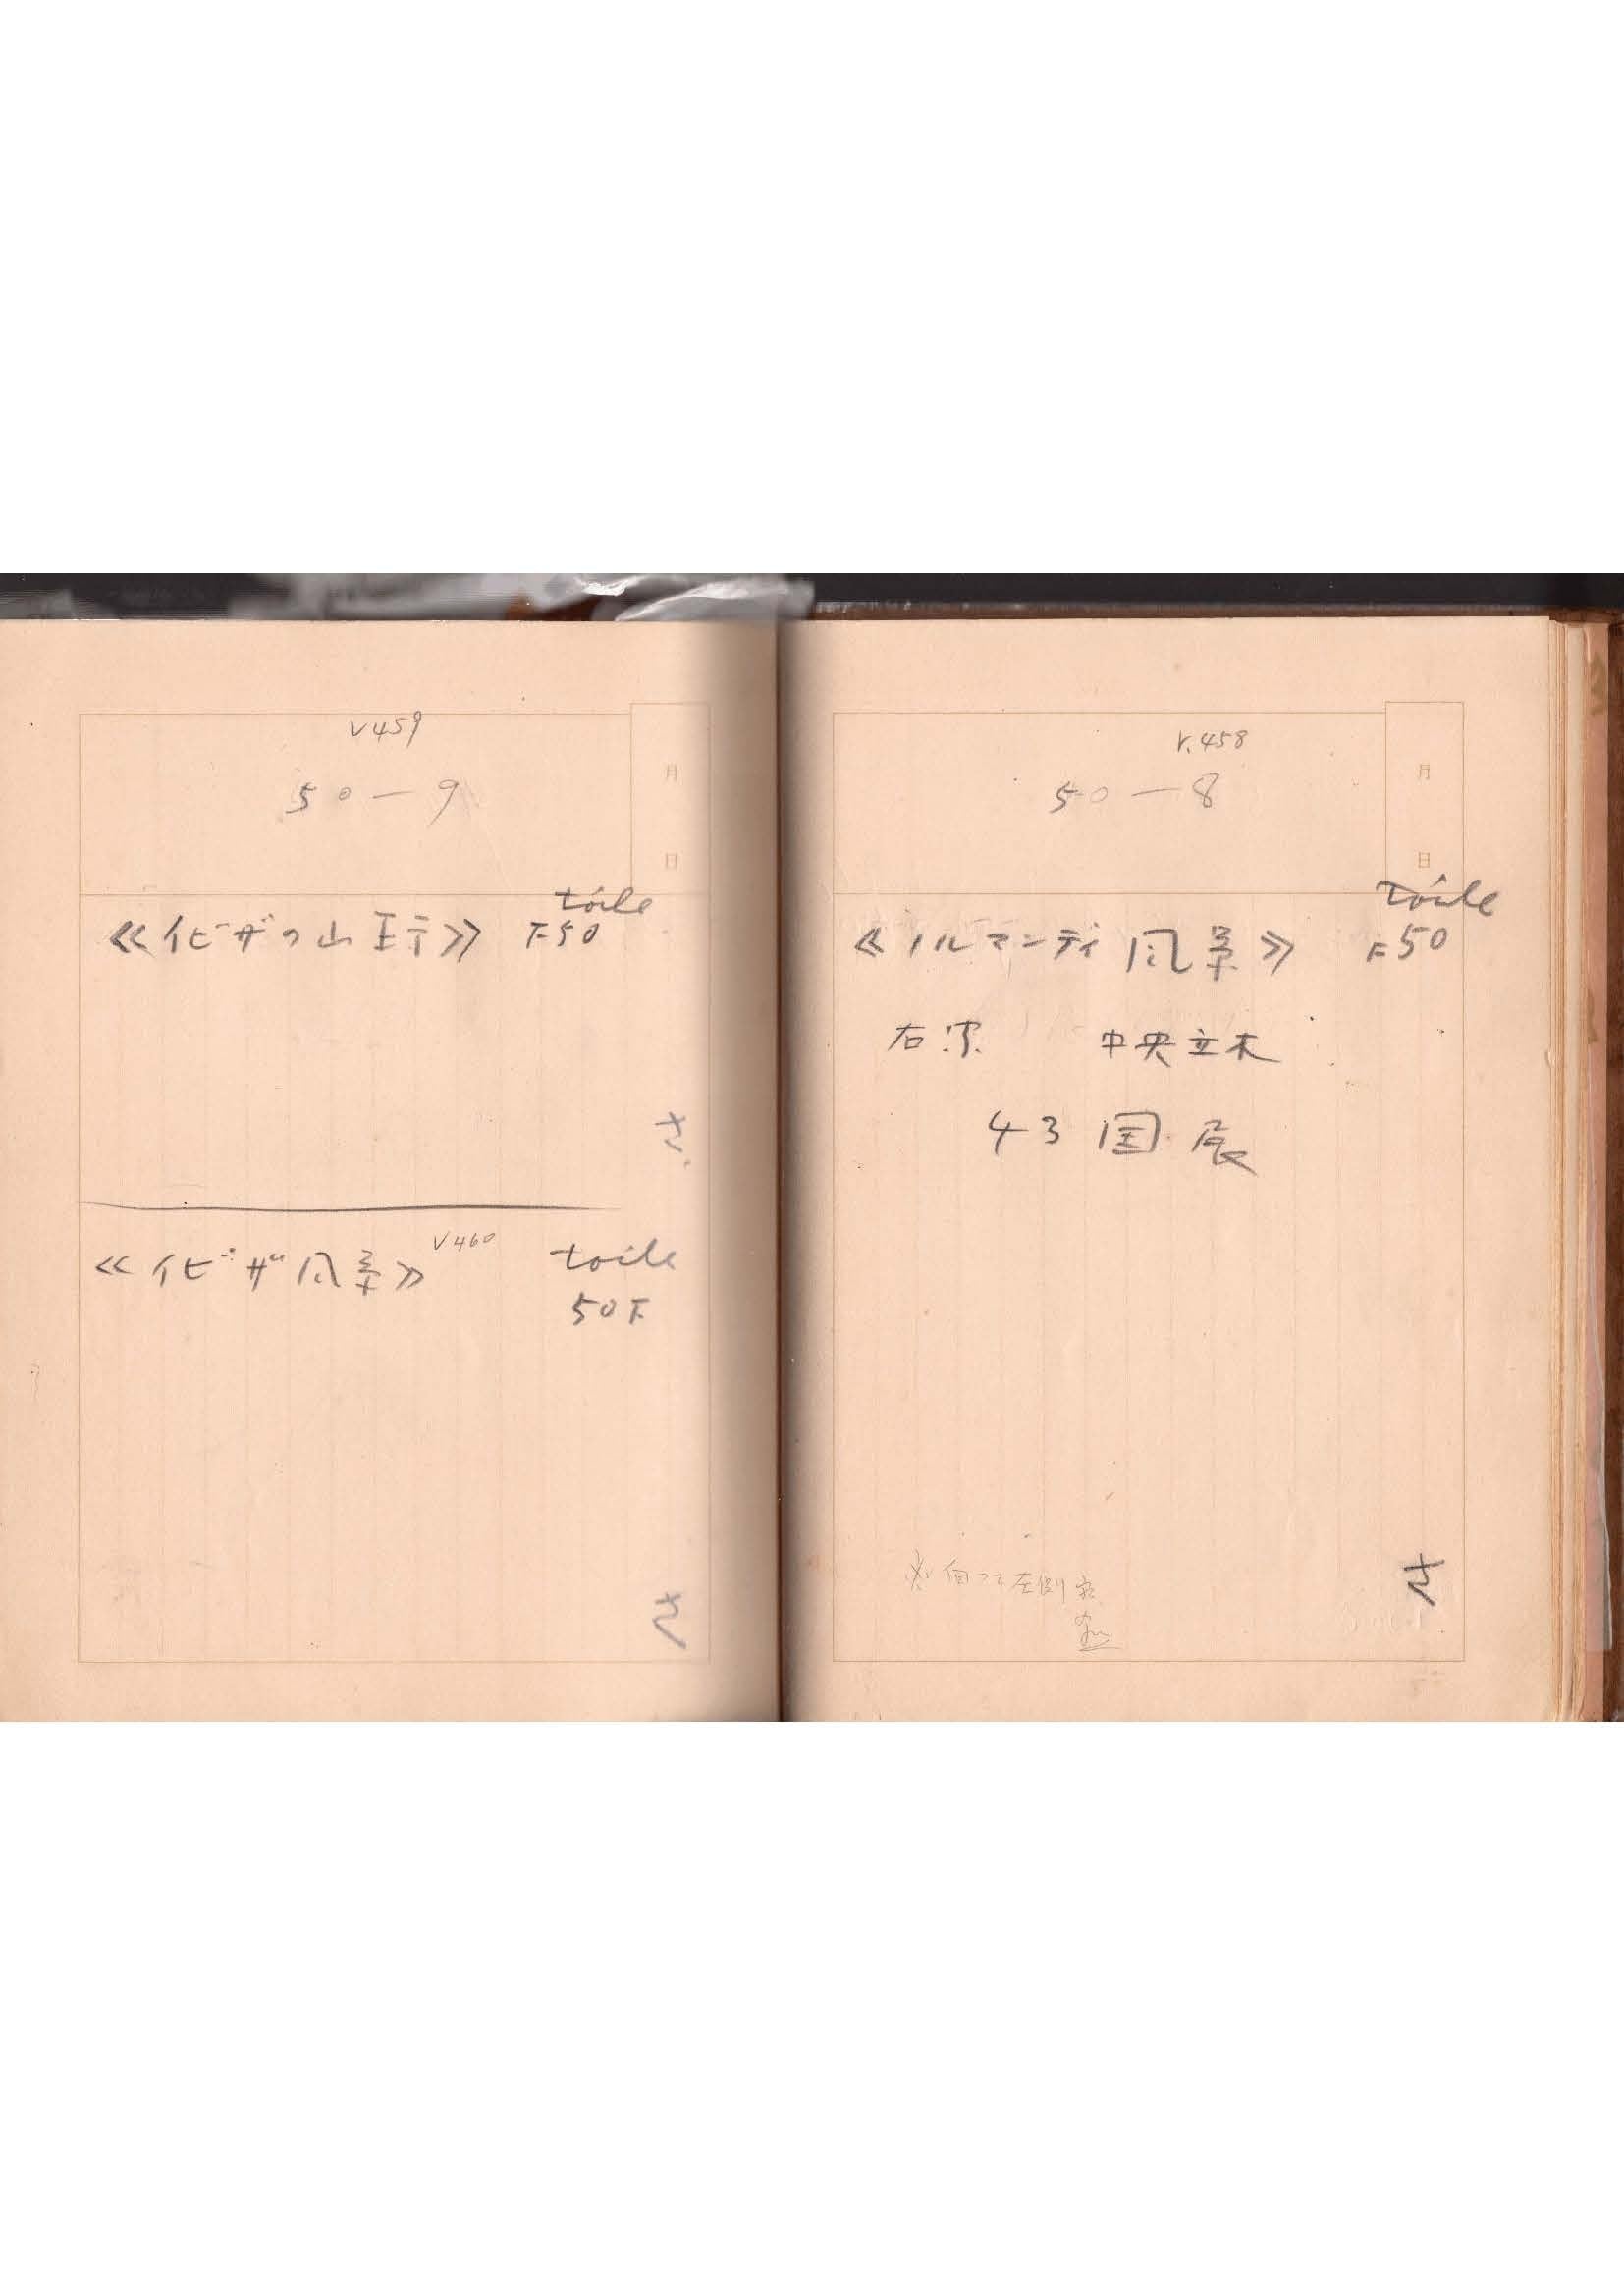 V459
50-9
月
日
toile
《イビザの山 F50
さ
《イビザ風景》 V460 toile
50F
さ
V.458
50-8
月
日
toile
《ノルマンディ風景》 F50
右 中央立木
43 国展
向って左側
さ